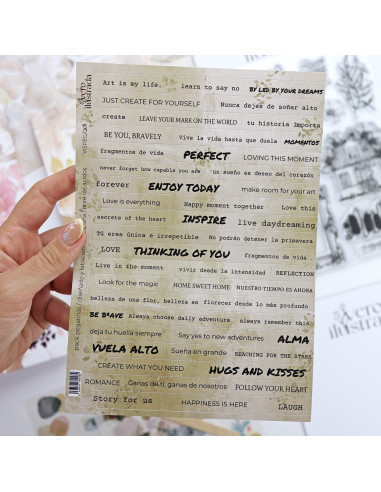 Art is my life. learn to say no BY LED BY YOUR DREAMS
JUST CREATE FOR YOURSELF Nunca dejes de soñar alto
create LEAVE YOUR MARK ON THE WORLD tu historia importa
BE YOU, BRAVELY vive la vida hasta que duela MOMENTOS
fragmentos de vida PERFECT LOVING THIS MOMENT
never forget how capable you are un sueño es deseo del corazón
forever ENJOY TODAY make room for your art
Love is everything Happy moment together Love this
secretos of the heart INSPIRE live daydreaming
Tú eres única e irrepetible No podrán detener la primavera
LOVE THINKING OF YOU fragmentos de vida
Live in the moment vivir desde la intensidad REFLECTION
Look for the magic HOME SWEET HOME NUESTRO TIEMPO ES AHORA
belleza de una flor, belleza es florecer desde lo más profundo
BE BRAVE Always choose daily adventure always remember this
deja tu huella siempre Say yes to new adventures ALMA
VUELA ALTO Sueña en grande REACHING FOR THE STARS
CREATE WHAT YOU NEED HUGS AND KISSES
ROMANCE Ganas de ti, ganas de nosotros FOLLOW YOUR HEART
Story for us HAPPINESS IS HERE LAUGH
ilustrata
ilustrata